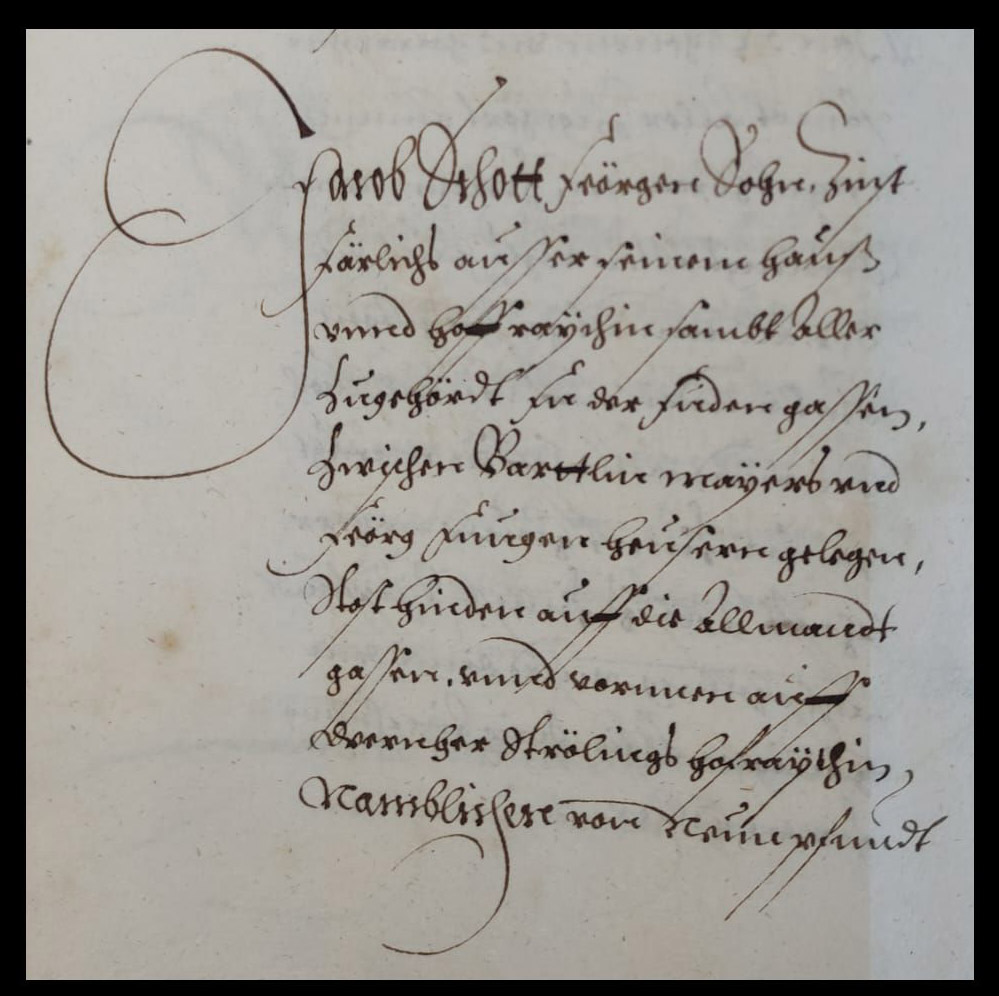 Jacob Schott Jeörgen Sohn, Zinst
Järlichs ausser seinem hauß
vnnd hoffraÿthin sambt Aller
Zugehördt In der Juden gassen,
Zwischen Barttlin maÿers vnd
Jeörg Jungen heusern gelegen,
Stost hinden auff die Allmandt
gassen, vnnd vornnen auff
Wernher Strölings hofraÿthin,
Namblichen von Neun pfundt